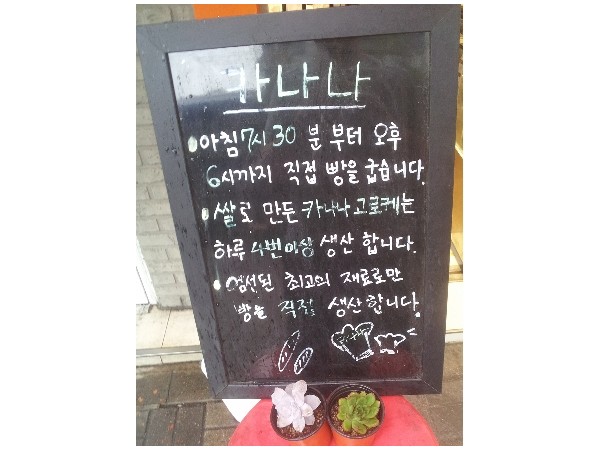 카나나
아침 7시 30분 부터 오후
6시까지 직접 빵을 굽습니다.
쌀로 만든 카나나 고로케는
하루 4번이상 생산 합니다.
엄선된 최고의 재료로만
빵을 직접 생산합니다.